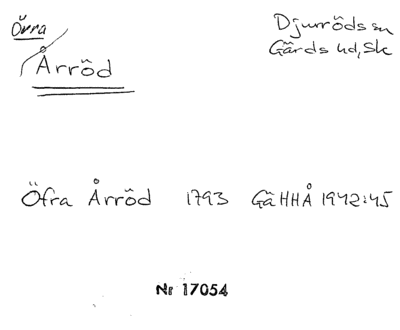 Övra
Årröd
Djurröds sn
Gärds hd, Sk
Öfra Årröd 1793 GäHHÅ 1942:45
Nr 17054